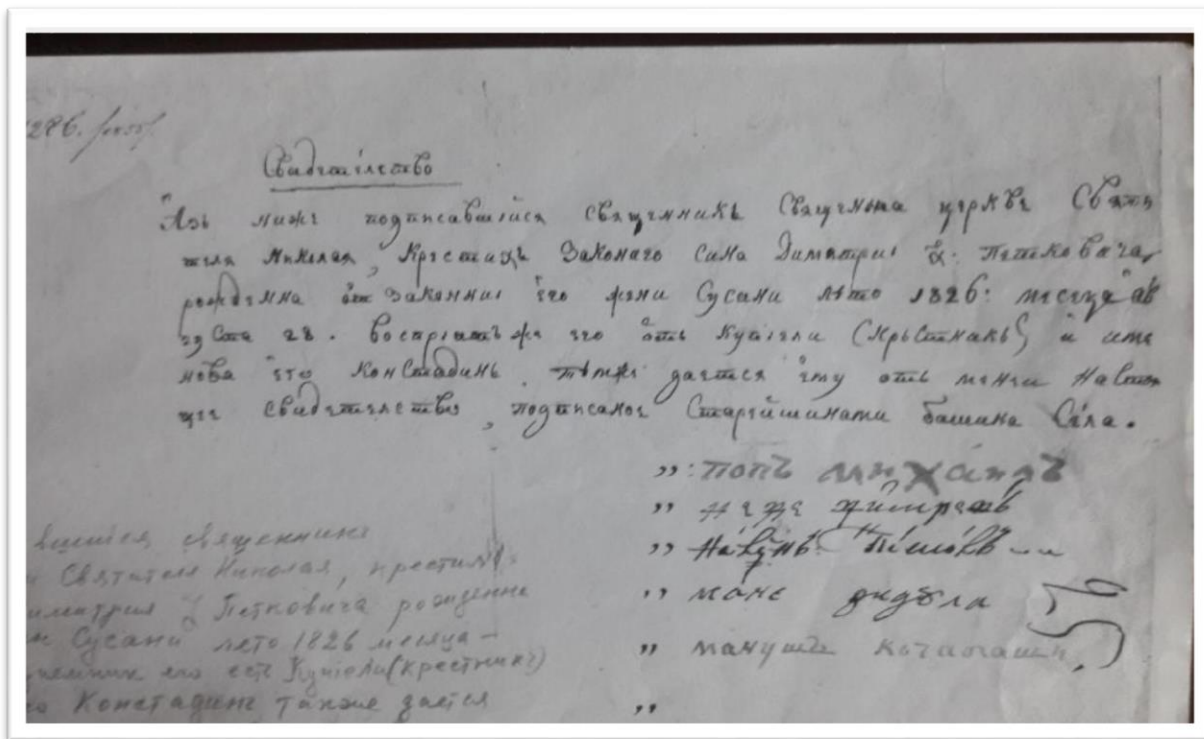 Свидетѣлство
Азъ ниже подписавшійся Священникъ Священныя церкве Святи
теля Николая, Крестихъ Законаго сина Димитриі х: Петковича,
рожденна от законниі его жени Сусани лѣто 1826: месеца ав
густа 28. воспріятъ же его отъ купѣли (Крьстникъ) и име
нова его Констадинь. дается ему отъ менеи Настоя
щее свидетелство, подписаное Старѣйшинами башина Села.
„: попъ михаилъ
„
„
„ моне дидула
„ манушъ
„
вшийся священникъ
Святителя Николая, крестилъ
имитрия χ Петковича рожденне
Сусани лето 1826 месяца –
его есть (крестникъ)
Констадинъ также дается
56